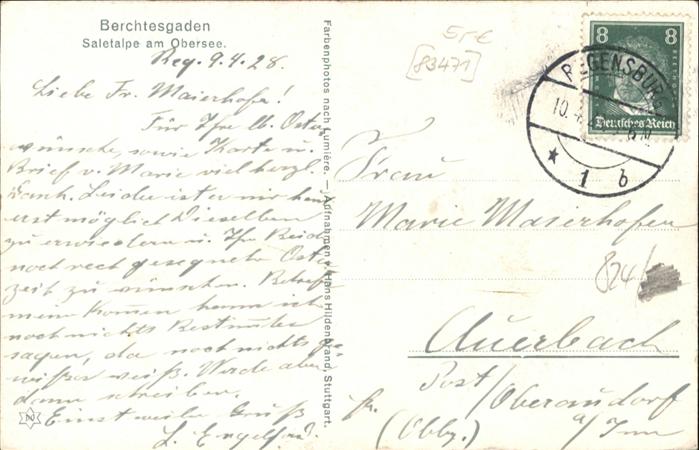 Berchtesgaden
Saletalpe am Obersee.
Reg. 9.4.28.
Liebe Fr. Maierhofer!
Für Ihre lb. Oster
wünsche, sowie Karte u.
Brief v. Marie viel herzl.
Dank. Leider ist es mir heut
erst möglich Dieselben
zu erwiedern u. Ihr Beide
noch recht gesegnete Oster
zeit zu wünschen. Betreff
mein Kommen kann ich
noch nichts Bestimmtes
sagen, da noch nichts ge
wisser weiß. Werde aber
dann schreiben.
Einstweilen Gruß
L. Engelh
Farbenphotos nach Lumière. — Aufnahmen v. Hans Hildenbrand, Stuttgart.
5,-€
[83471]
8 8
BEETHOVEN
Deutsches Reich
REGENSBURG
10.4.
* 1 b
Frau
Marie Maierhofer
824/
Auerbach
Post/Oberaudorf
a/Inn
(Obby.)